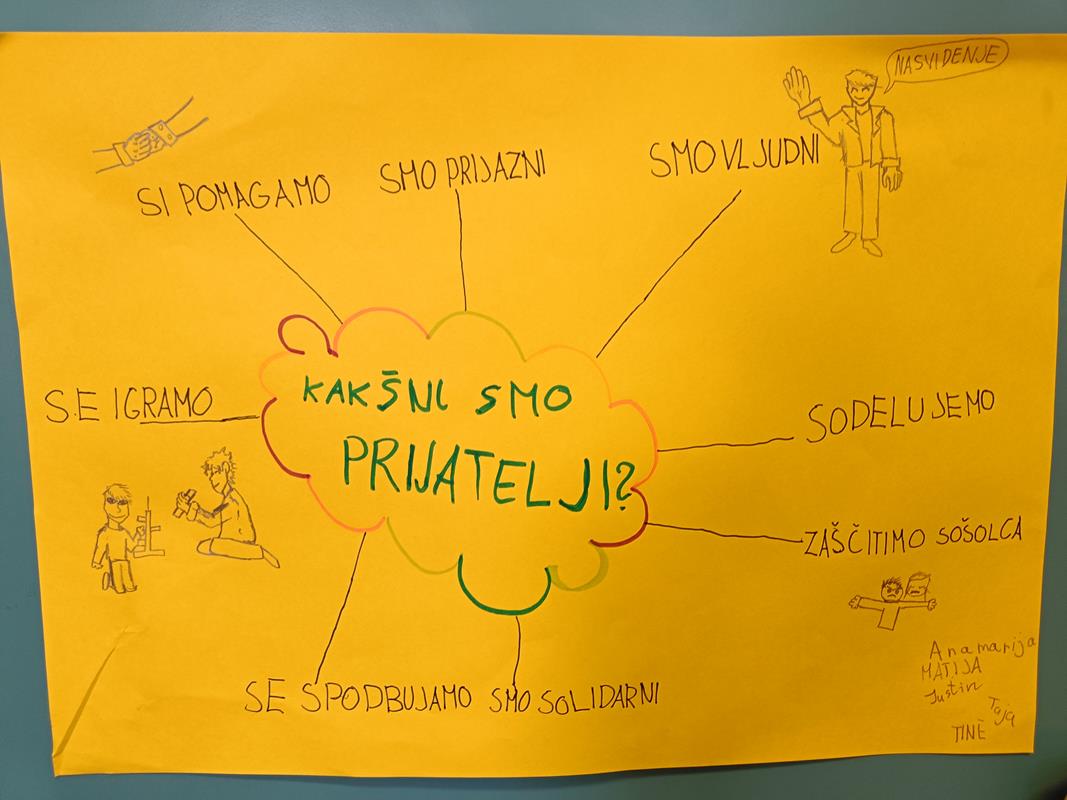 NASVIDENJE
SI POMAGAMO
SMO PRIJAZNI
SMO VLJUDNI
KAKŠNI SMO
PRIJATELJI?
SE IGRAMO
SODELUJEMO
ZAŠČITIMO SOŠOLCA
SE SPODBUJAMO
SMO SOLIDARNI
Anamarija
MATIJA
Justin
Taja
TINE